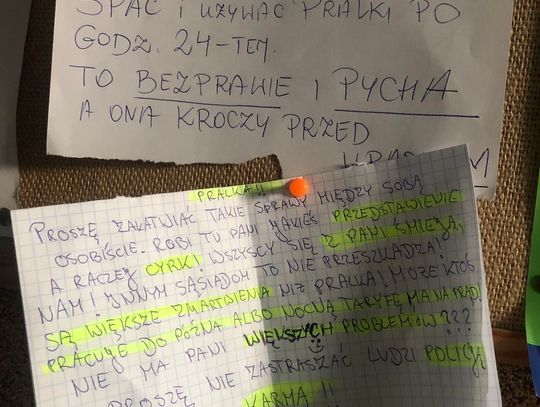 SPAĆ i UŻYWAĆ PRALKI PO
GODZ. 24-TEJ.
TO BEZPRAWIE i PYCHA
A ONA KROCZY PRZED
PRALKA!!
PROSZĘ ZAŁATWIAĆ TAKIE SPRAWY MIĘDZY SOBĄ
OSOBIŚCIE. ROBI TU PANI JAKIEŚ PRZEDSTAWIENIE
A RACZEJ CYRK! WSZYSCY SIĘ Z PANI ŚMIEJĄ,
NAM! INNYM SĄSIADOM TO NIE PRZESZKADZA!
SĄ WIĘKSZE ZMARTWIENIA NIŻ PRALKA! MOŻE KTOŚ
PRACUJE DO PÓŹNA ALBO NOCNĄ TARYFĘ MA NA PRĄD!
NIE MA PANI WIĘKSZYCH PROBLEMÓW???
PROSZĘ NIE ZASTRASZAĆ LUDZI POLICJĄ
KARMA!!